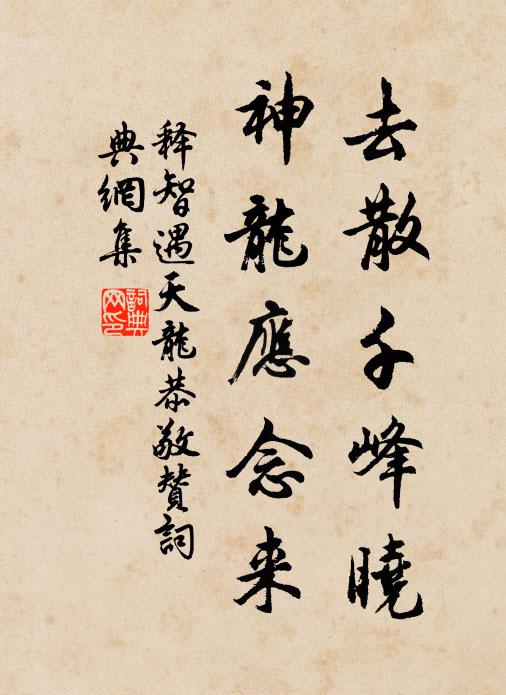 去散千峰曉
神龍應念来
释智遇天龍恭敬贊詞
典網集
詞典网印